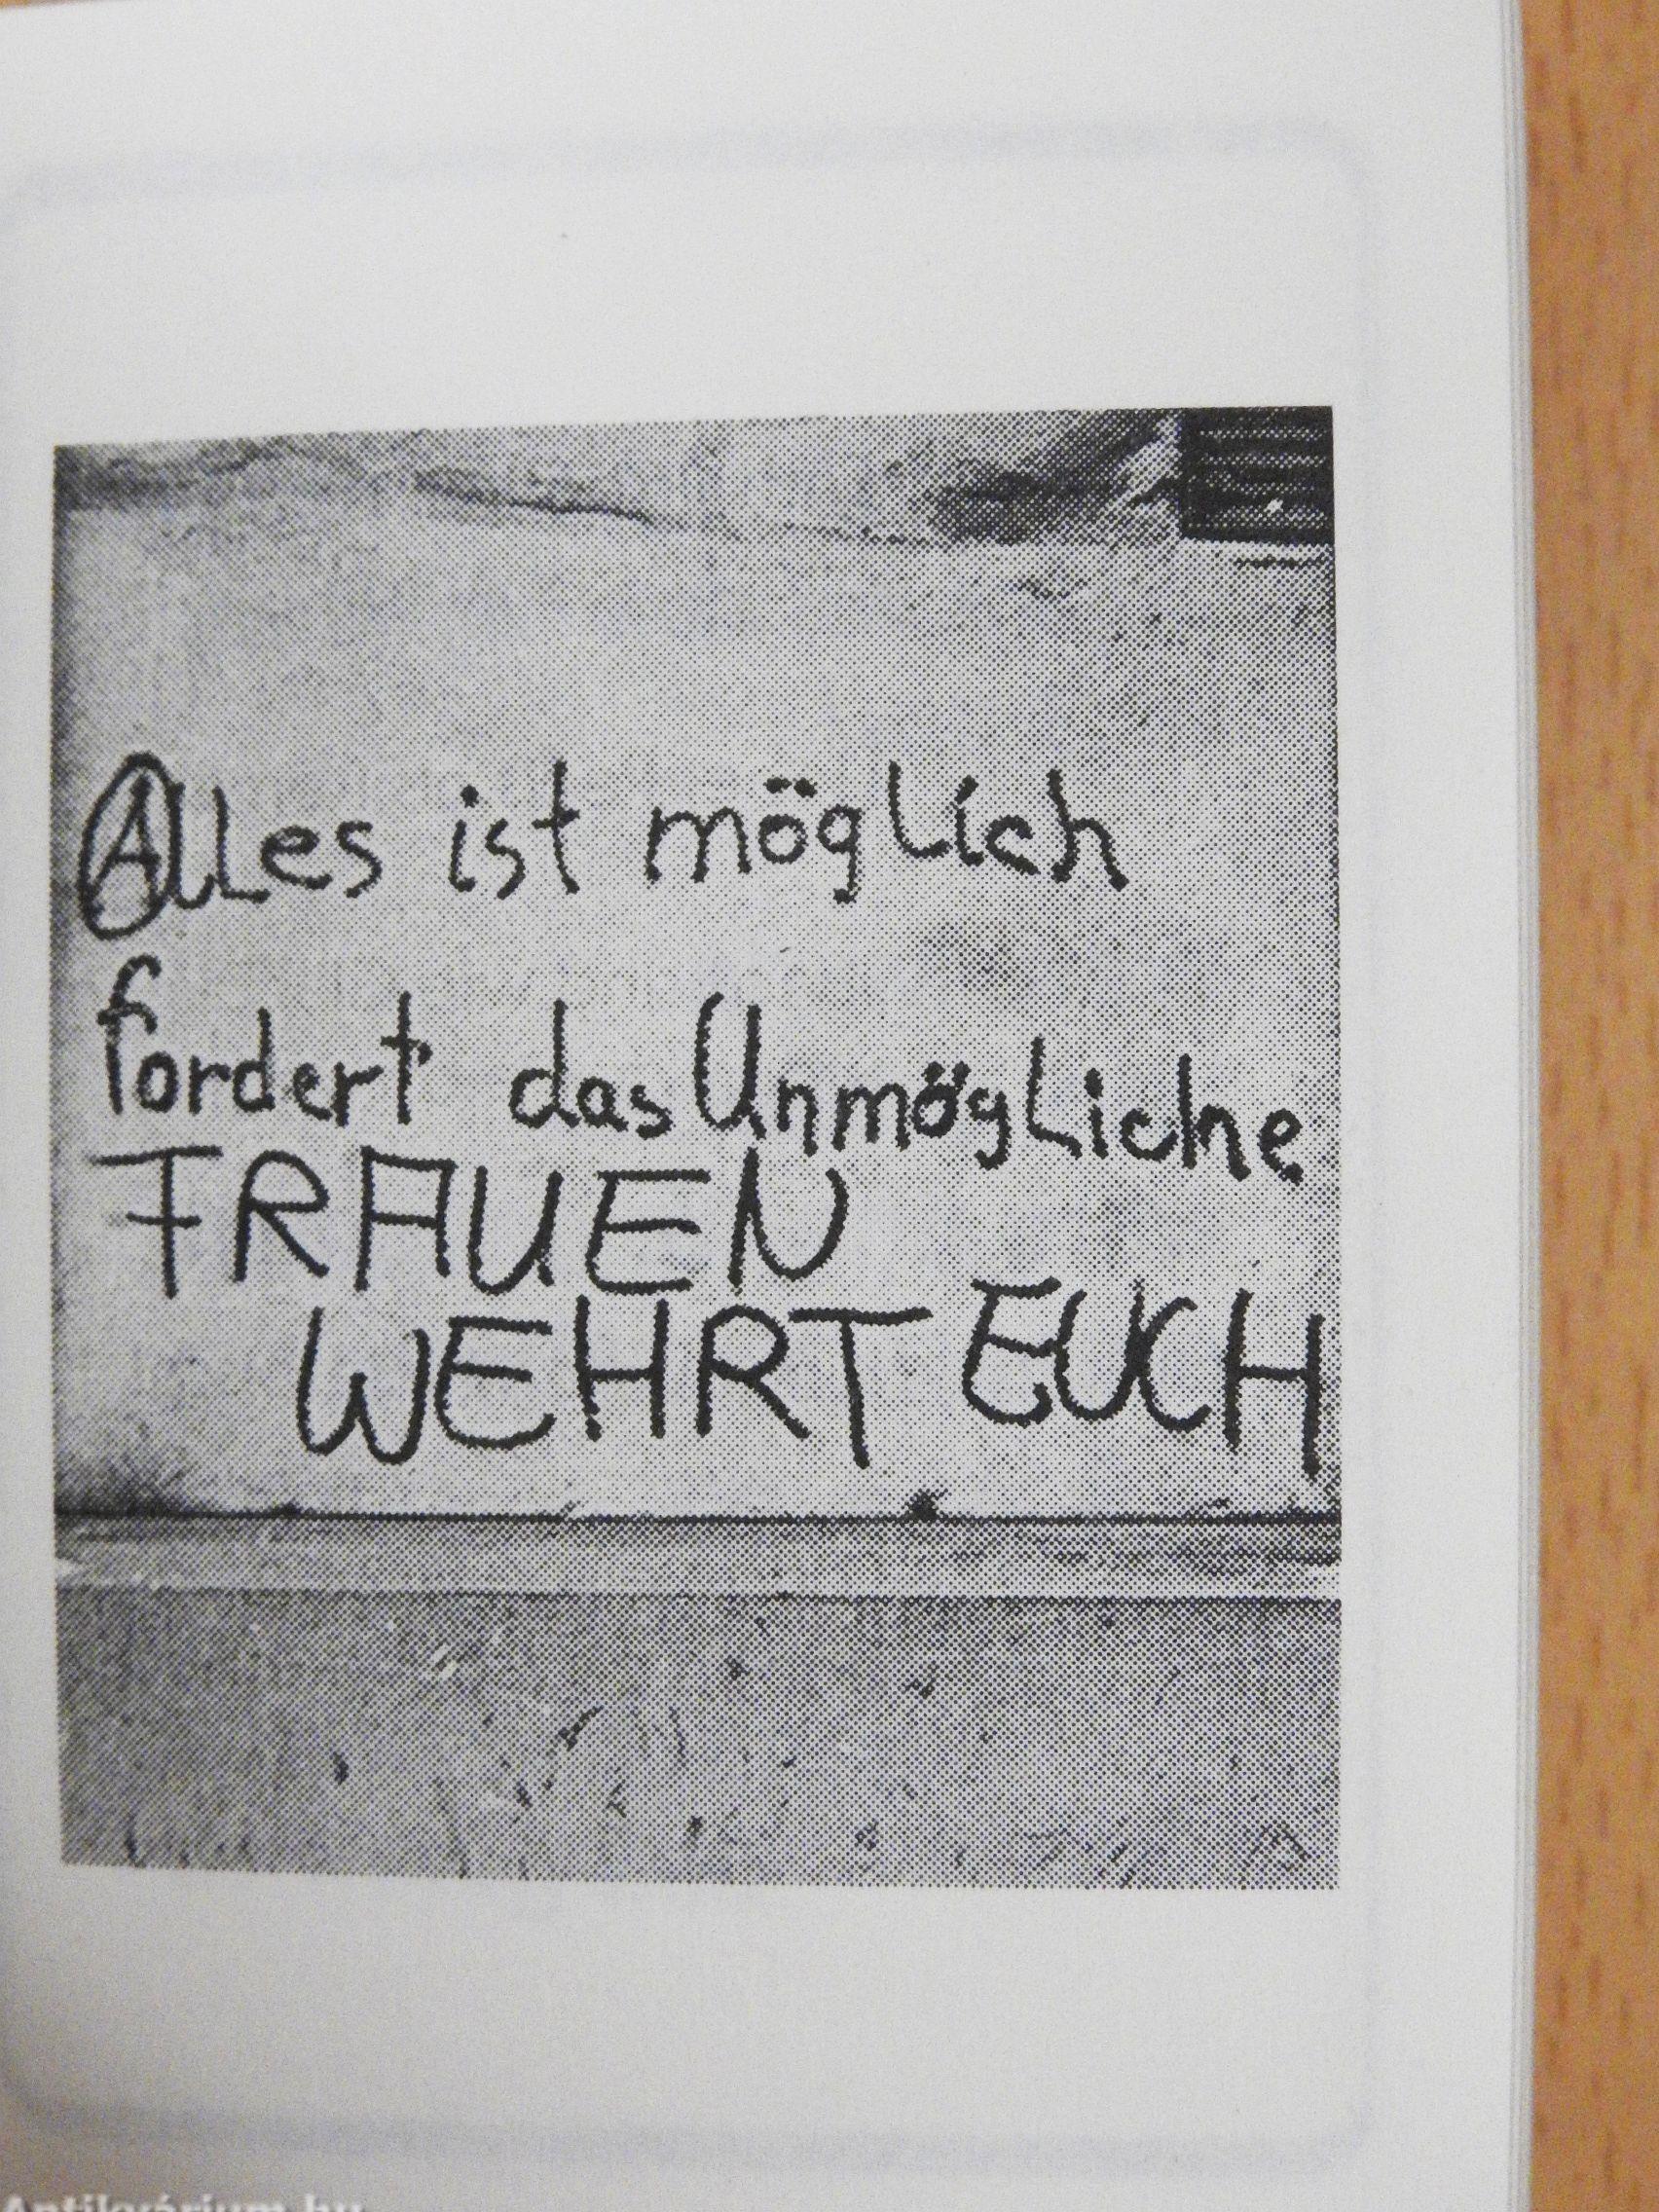 Alles ist möglich
fordert das Unmögliche
FRAUEN
WEHRT EUCH
Antikvárium.hu